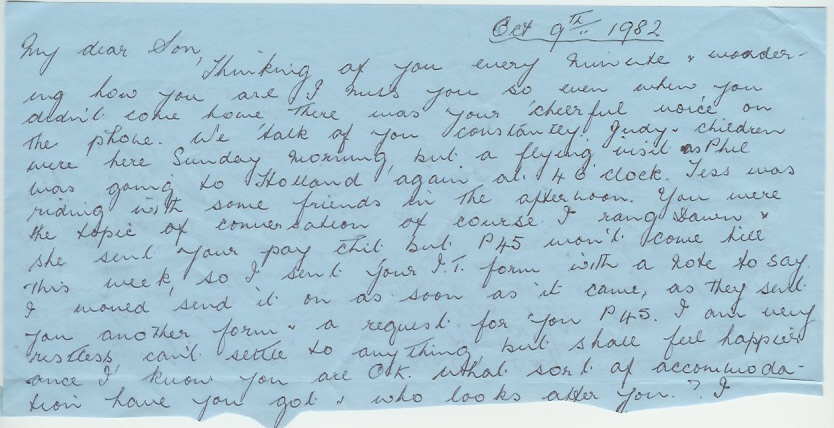 Oct 9TH 1982
My dear Son,
Thinking of you every minute & wonder-
ing how you are I miss you so even when you
didn't come home there was your 'cheerful voice' on
the phone. We talk of you constantly Judy & children
were here Sunday morning, but a flying visit as Phil
was going to Holland again at 4 o'clock. Tess was
riding with some friends in the afternoon. You were
the topic of conversation of course. I rang Dawn &
she sent your pay chit but P45 won't come till
this week, so I sent your I.T. form with a note to say
I would send it on as soon as it came, as they sent
you another form & a request for you P45. I am very
restless, can't settle to anything, but shall feel happier
once I know you are O.K. What sort of accommoda-
tion have you got & who looks after you.? I